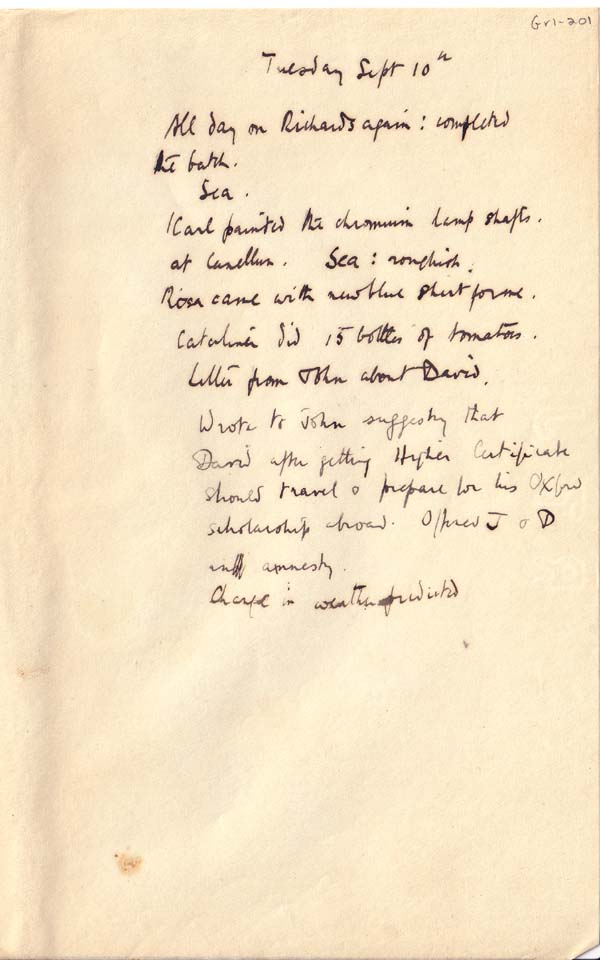 Gr1-201
Tuesday Sept 10th
All day on Richards again: completed
the batch.
Sea.
Karl painted the chromium lamp shafts.
at Canellun. Sea: roughish.
Rosa came with new blue shirt for me.
Catalina did 15 bottles of tomatoes.
Letter from John about David.
Wrote to John suggesting that
David after getting Higher Certificate
should travel & prepare for his Oxford
scholarship abroad. Offered J & D
amnesty.
Change in weather predicted